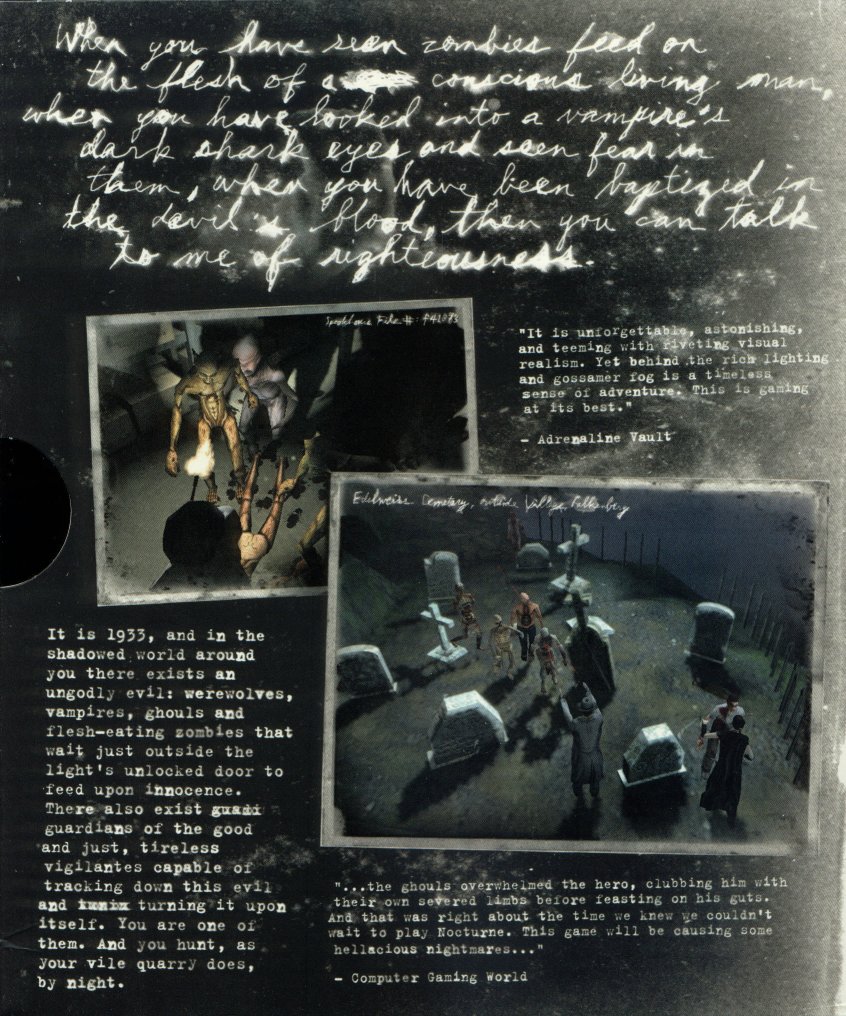 When you have seen zombies feed on
the flesh of a conscious living man,
when you have looked into a vampire's
dark shark eyes and seen fear in
them, when you have been baptized in
the devil's blood, then you can talk
to me of righteousness.
Spookhouse File #: 442073
"It is unforgettable, astonishing,
and teeming with riveting visual
realism. Yet behind the rich lighting
and gossamer fog is a timeless
sense of adventure. This is gaming
at its best."
- Adrenaline Vault
Edelweiss Cemetary, outside Village Falkenburg
It is 1933, and in the
shadowed world around
you there exists an
ungodly evil: werewolves,
vampires, ghouls and
flesh-eating zombies that
wait just outside the
light's unlocked door to
feed upon innocence.
There also exist
guardians of the good
and just, tireless
vigilantes capable of
tracking down this evil
and turning it upon
itself. You are one of
them. And you hunt, as
your vile quarry does,
by night.
"...the ghouls overwhelmed the hero, clubbing him with
their own severed limbs before feasting on his guts.
And that was right about the time we knew we couldn't
wait to play Nocturne. This game will be causing some
hellacious nightmares..."
- Computer Gaming World